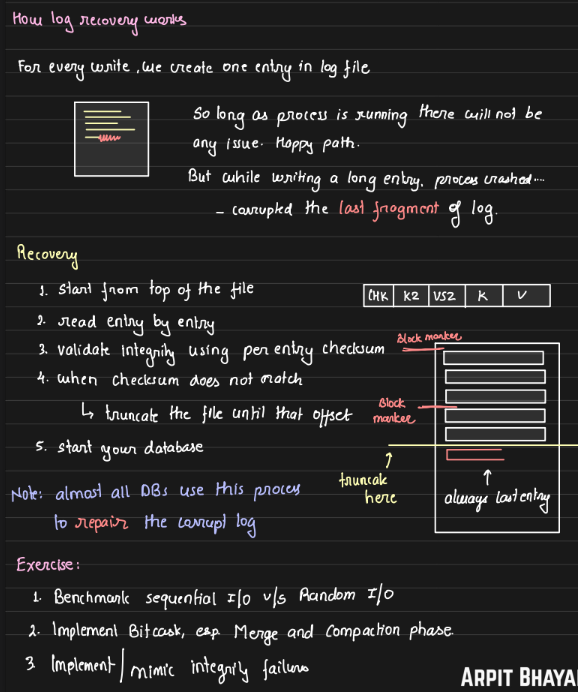 How log recovery works
For every write, we create one entry in log file
So long as process is running there will not be
any issue. Happy path.
But while writing a long entry, process crashed....
- corrupted the last fragment of log.
Recovery
1. start from top of the file
2. read entry by entry
3. validate integrity using per entry checksum
4. when checksum does not match
↳ truncate the file until that offset
5. start your database
CHK KZ VSZ K V
Block marker
Block
marker
truncate
here
always last entry
Note: almost all DBs use this process
to repair the corrupt log
Exercise:
1. Benchmark sequential I/O v/s Random I/O
2. Implement Bitcask, esp. Merge and Compaction phase.
3. Implement/mimic integrity failures
ARPIT BHAYA